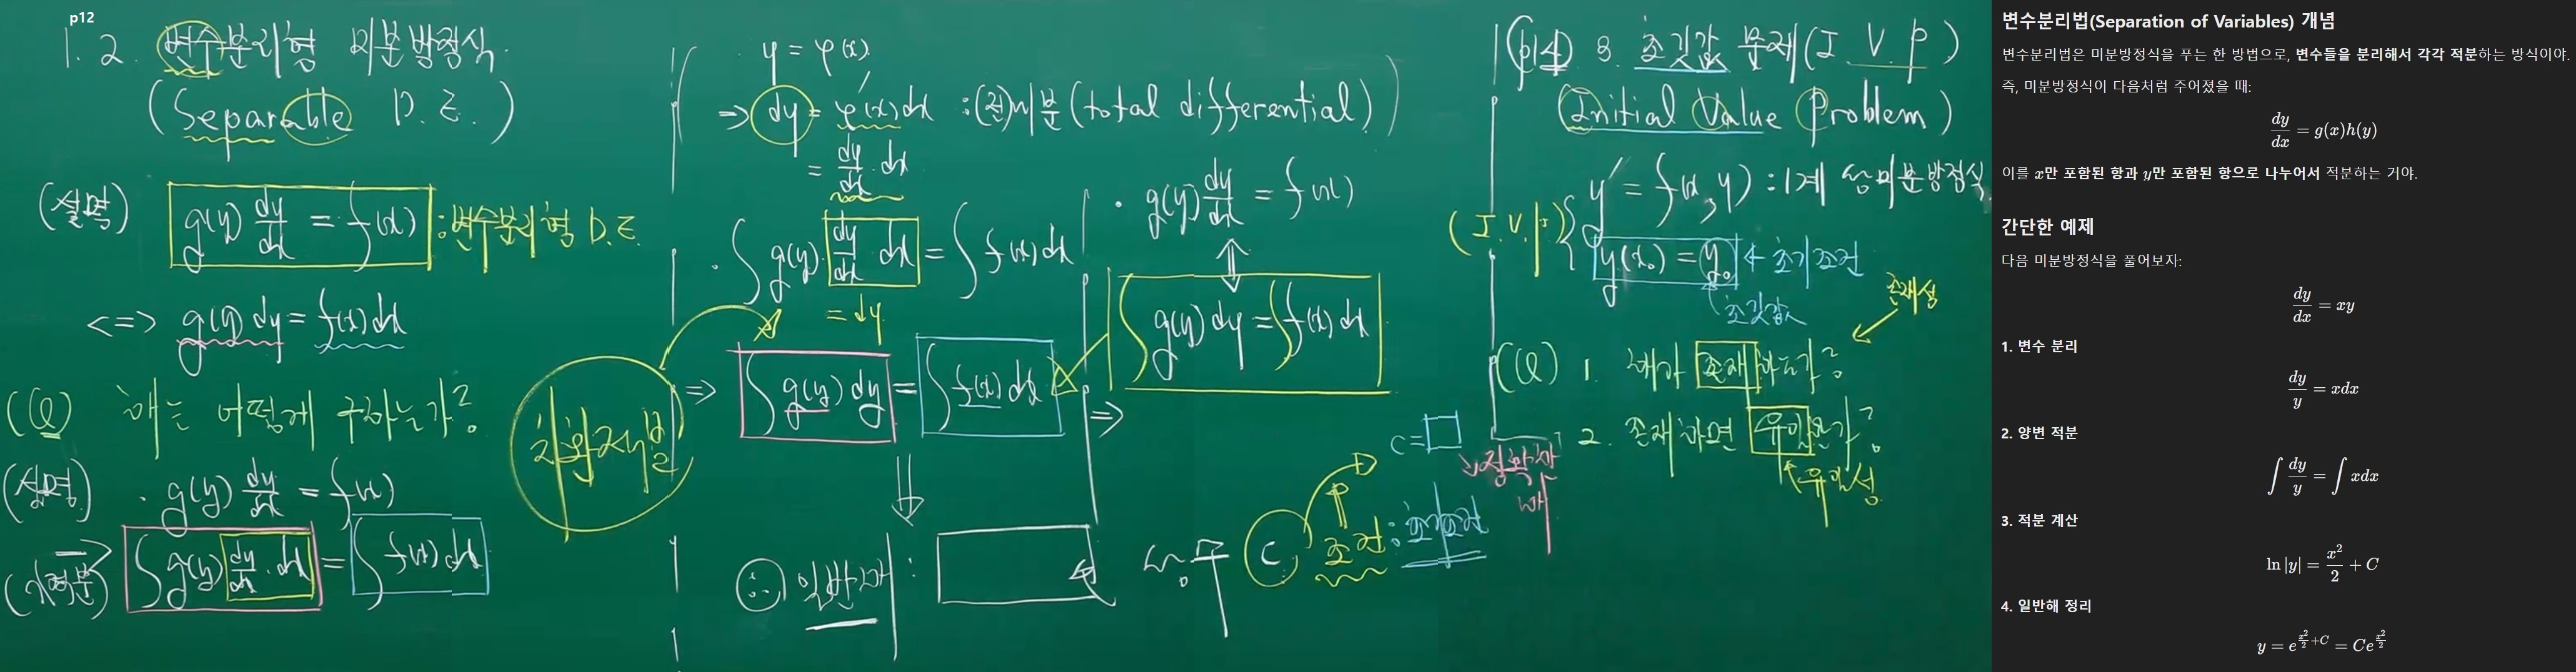 p12
1. 2. 변수분리형 미분방정식.
(Separable D. E.)
(설명) g(y) dy/dx = f(x) : 변수분리형 D.E.
<=> g(y) dy = f(x) dx
(Q) 해는 어떻게 구하는가?
(설명) · g(y) dy/dx = f(x)
=> ∫ g(y) dy/dx · dx = ∫ f(x) dx
y = φ(x)
=> dy = φ'(x) dx : (전)미분 (total differential)
= dy/dx · dx
· ∫ g(y) · dy/dx · dx = ∫ f(x) dx
= dy
치환적분법
=> ∫ g(y) dy = ∫ f(x) dx
⇓
∴ 일반해 :
· g(y) dy/dx = f(x)
⇕
∫ g(y) dy = ∫ f(x) dx
=>
C
조건 : 초기조건
C = □
(p14) 3. 초깃값 문제 (I. V. P)
(Initial Value Problem)
(I.V.P) { y' = f(x, y) : 1계 상미분방정식
y(x₀) = y₀ ← 초기조건
초깃값
존재성
(Q) 1. 해가 존재하는가?
2. 존재하면 유일한가?
유일성
변수분리법(Separation of Variables) 개념
변수분리법은 미분방정식을 푸는 한 방법으로, 변수들을 분리해서 각각 적분하는 방식이야.
즉, 미분방정식이 다음처럼 주어졌을 때:
dy/dx = g(x)h(y)
이를 x만 포함된 항과 y만 포함된 항으로 나누어서 적분하는 거야.
간단한 예제
다음 미분방정식을 풀어보자:
dy/dx = xy
1. 변수 분리
dy/y = xdx
2. 양변 적분
∫ dy/y = ∫ xdx
3. 적분 계산
ln |y| = x²/2 + C
4. 일반해 정리
y = e^(x²/2 + C) = Ce^(x²/2)